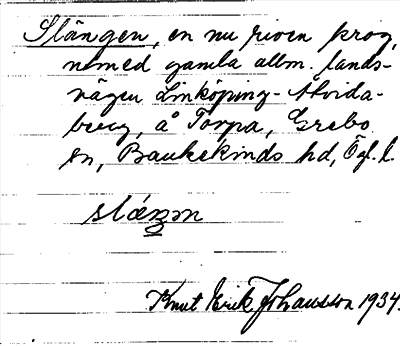 Slängen, en nu riven krog,
nemed gamla allm. lands-
vägen Linköping-Åtvida-
berg, å Torpa, Grebo
sn, Bankekinds hd, Ögl.
slæŋən
Knut Erik Johansson 1934.